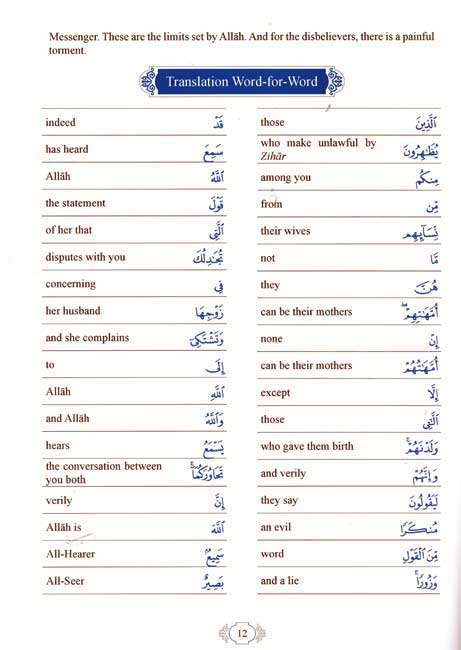 Messenger. These are the limits set by Allāh. And for the disbelievers, there is a painful
torment.
Translation Word-for-Word
indeed قَدْ
has heard سَمِعَ
Allāh ٱللَّهُ
the statement قَوْلَ
of her that ٱلَّتِى
disputes with you تُجَـٰدِلُكَ
concerning فِى
her husband زَوْجِهَا
and she complains وَتَشْتَكِىٓ
to إِلَى
Allāh ٱللَّهِ
and Allāh وَٱللَّهُ
hears يَسْمَعُ
the conversation between
you both تَحَاوُرَكُمَآ ۚ
verily إِنَّ
Allāh is ٱللَّهَ
All-Hearer سَمِيعٌۢ
All-Seer بَصِيرٌ
those ٱلَّذِينَ
who make unlawful by
Zihār يُظَـٰهِرُونَ
among you مِنكُم
from مِّن
their wives نِّسَآئِهِم
not مَّا
they هُنَّ
can be their mothers أُمَّهَـٰتِهِمْ ۖ
none إِنْ
can be their mothers أُمَّهَـٰتُهُمْ
except إِلَّا
those ٱلَّـٰٓـِٔى
who gave them birth وَلَدْنَهُمْ ۚ
and verily وَإِنَّهُمْ
they say لَيَقُولُونَ
an evil مُنكَرًا
word مِّنَ ٱلْقَوْلِ
and a lie وَزُورًا ۚ
12